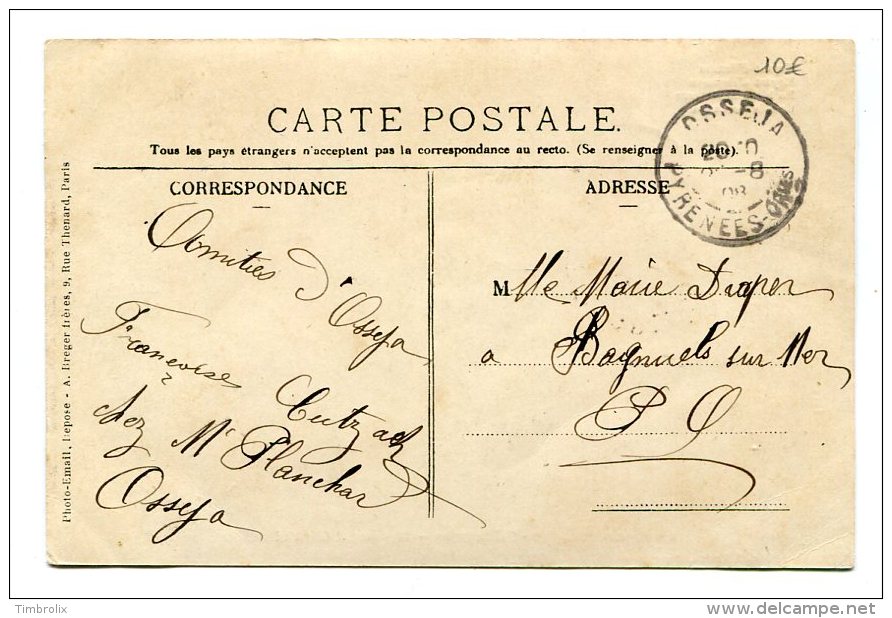 10€
CARTE POSTALE.
Tous les pays étrangers n'acceptent pas la correspondance au recto. (Se renseigner à la poste).
OSSEJA
20 10
-8
08
PYRENEES-ORles
CORRESPONDANCE
ADRESSE
Amities d'Osseja
Francoise
Cutzach
chez Mr Planchar
Osseja
Mlle Marie Draper
a Bagnuels sur Mer
P O
Photo-Email, Depose - A. Breger frères, 9, Rue Thenard, Paris
Timbrolix
www.delcampe.net